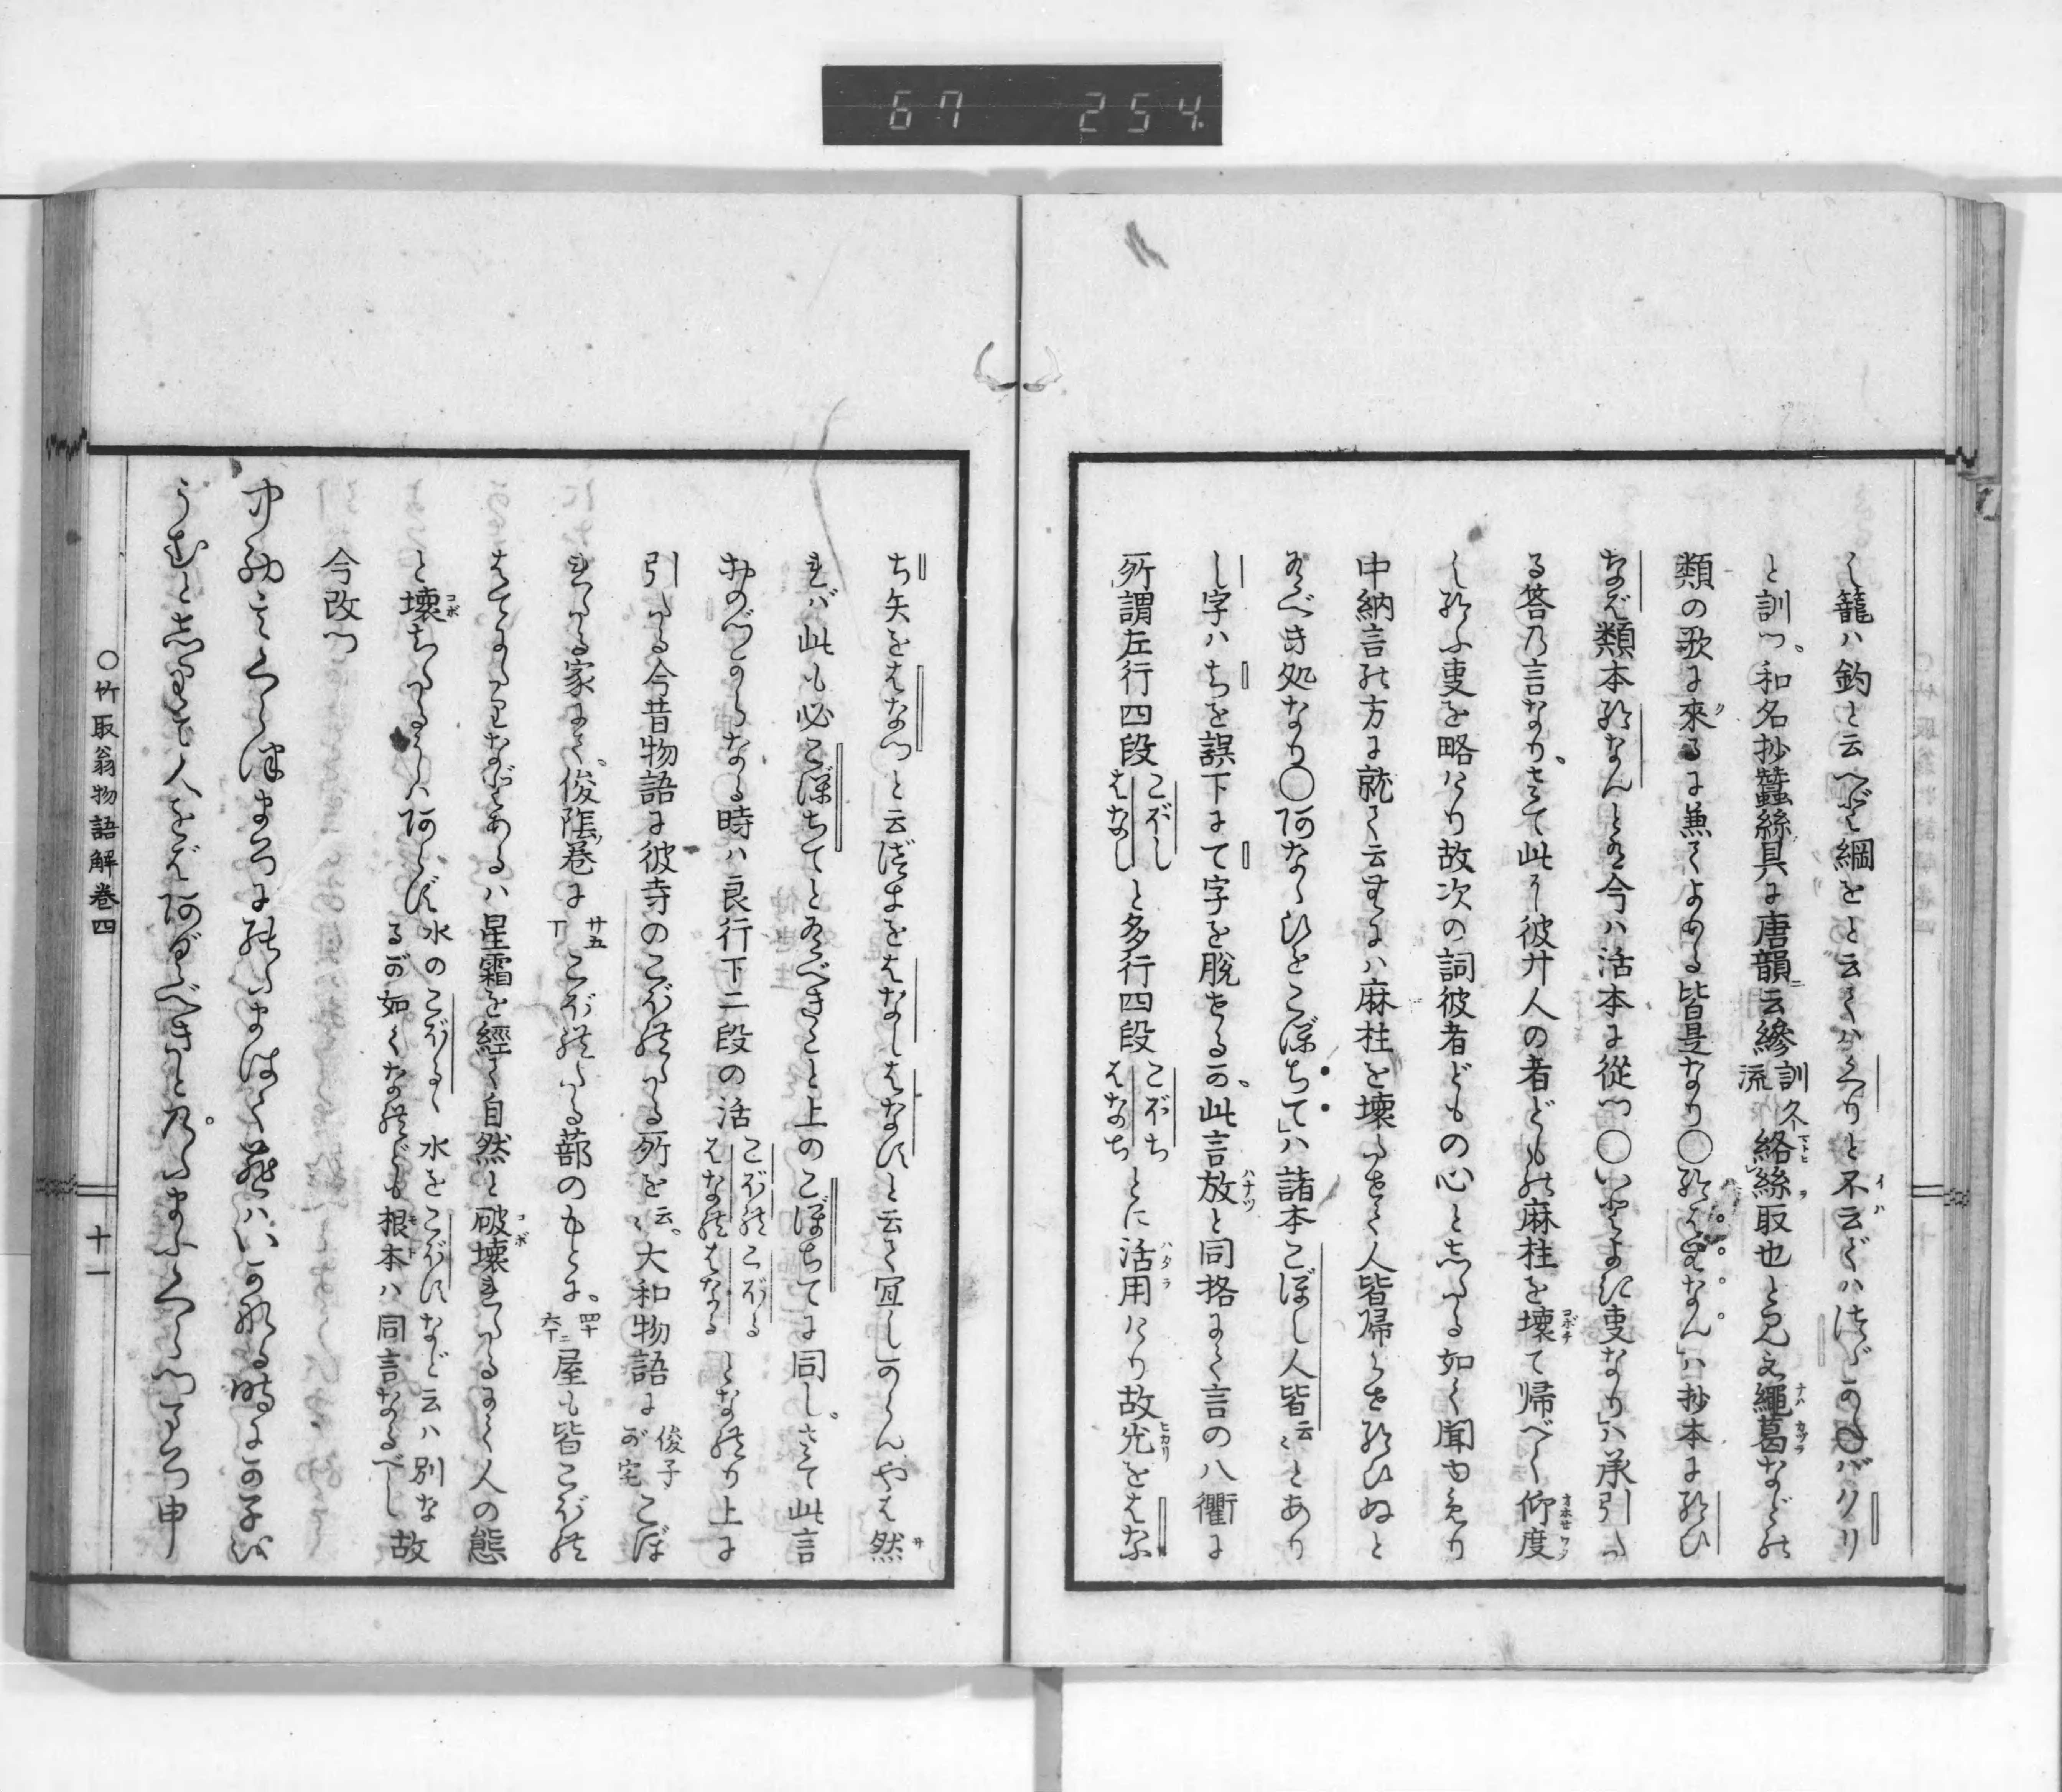 67 254.
し籠ハ釣と云べど綱をと云てハくりと不云ばハほどのバクリ
と訓つ、和名抄蠶絲具に唐韻云縿訓久流絡絲取也と見え繩葛などの
類の歌に來るに兼てよめる皆是なり○給はなん」ハ抄本に給ひ
なば類本給なんとある今ハ活本に從つ○いとよき事なり」ハ承引た
る答の言なり、さて此に彼廿人の者どもの麻柱を壞て帰べく仰度
し給ふ事を略けり故次の詞彼者どもの心と志たる如く聞ゆめり
中納言の方に就て云むにハ麻柱を壞たせて人皆帰らせ給ひぬと
あるべき処なり○あなゝひをこぼちて」ハ諸本こぼし人皆云々とあり
し字ハちを誤下にて字を脱せるか、此言放と同格にて言の八衢に
所謂左行四段こぼしはなしと多行四段こぼちはなちとに活用けり故光をはなち
ち矢をはなつと云ほまをはなしはなひと云て宜し」のらんやも然
れバ此も必こぼちてとあるべきこと上のこぼちてに同し。さて此言
おのづからなる時ハ良行下二段の活こぼれはなれこぼるはなるとなれり上に
引たる今昔物語に彼寺のこぼれたる所を云々、大和物語に俊子が宅こぼ
れたる家にて、俊蔭巻に廿五丁こぼれたる蔀のもとに、四十六丁ニ屋も皆こぼれ
はてにたりなどあるハ星霜を經て自然と破壞れたるにて人の態
と壞ちたるにハあらず水のこぼるゝ水をこぼすなど云ハ別なるが如くなれども根本ハ同言なるべし故
今改つ
中納言くらつまろにのたまはく燕ハいかなる時にか子を
うむと志りて人をばあぐべきとのたまふくらつまろ申
○竹取翁物語解巻四
十一